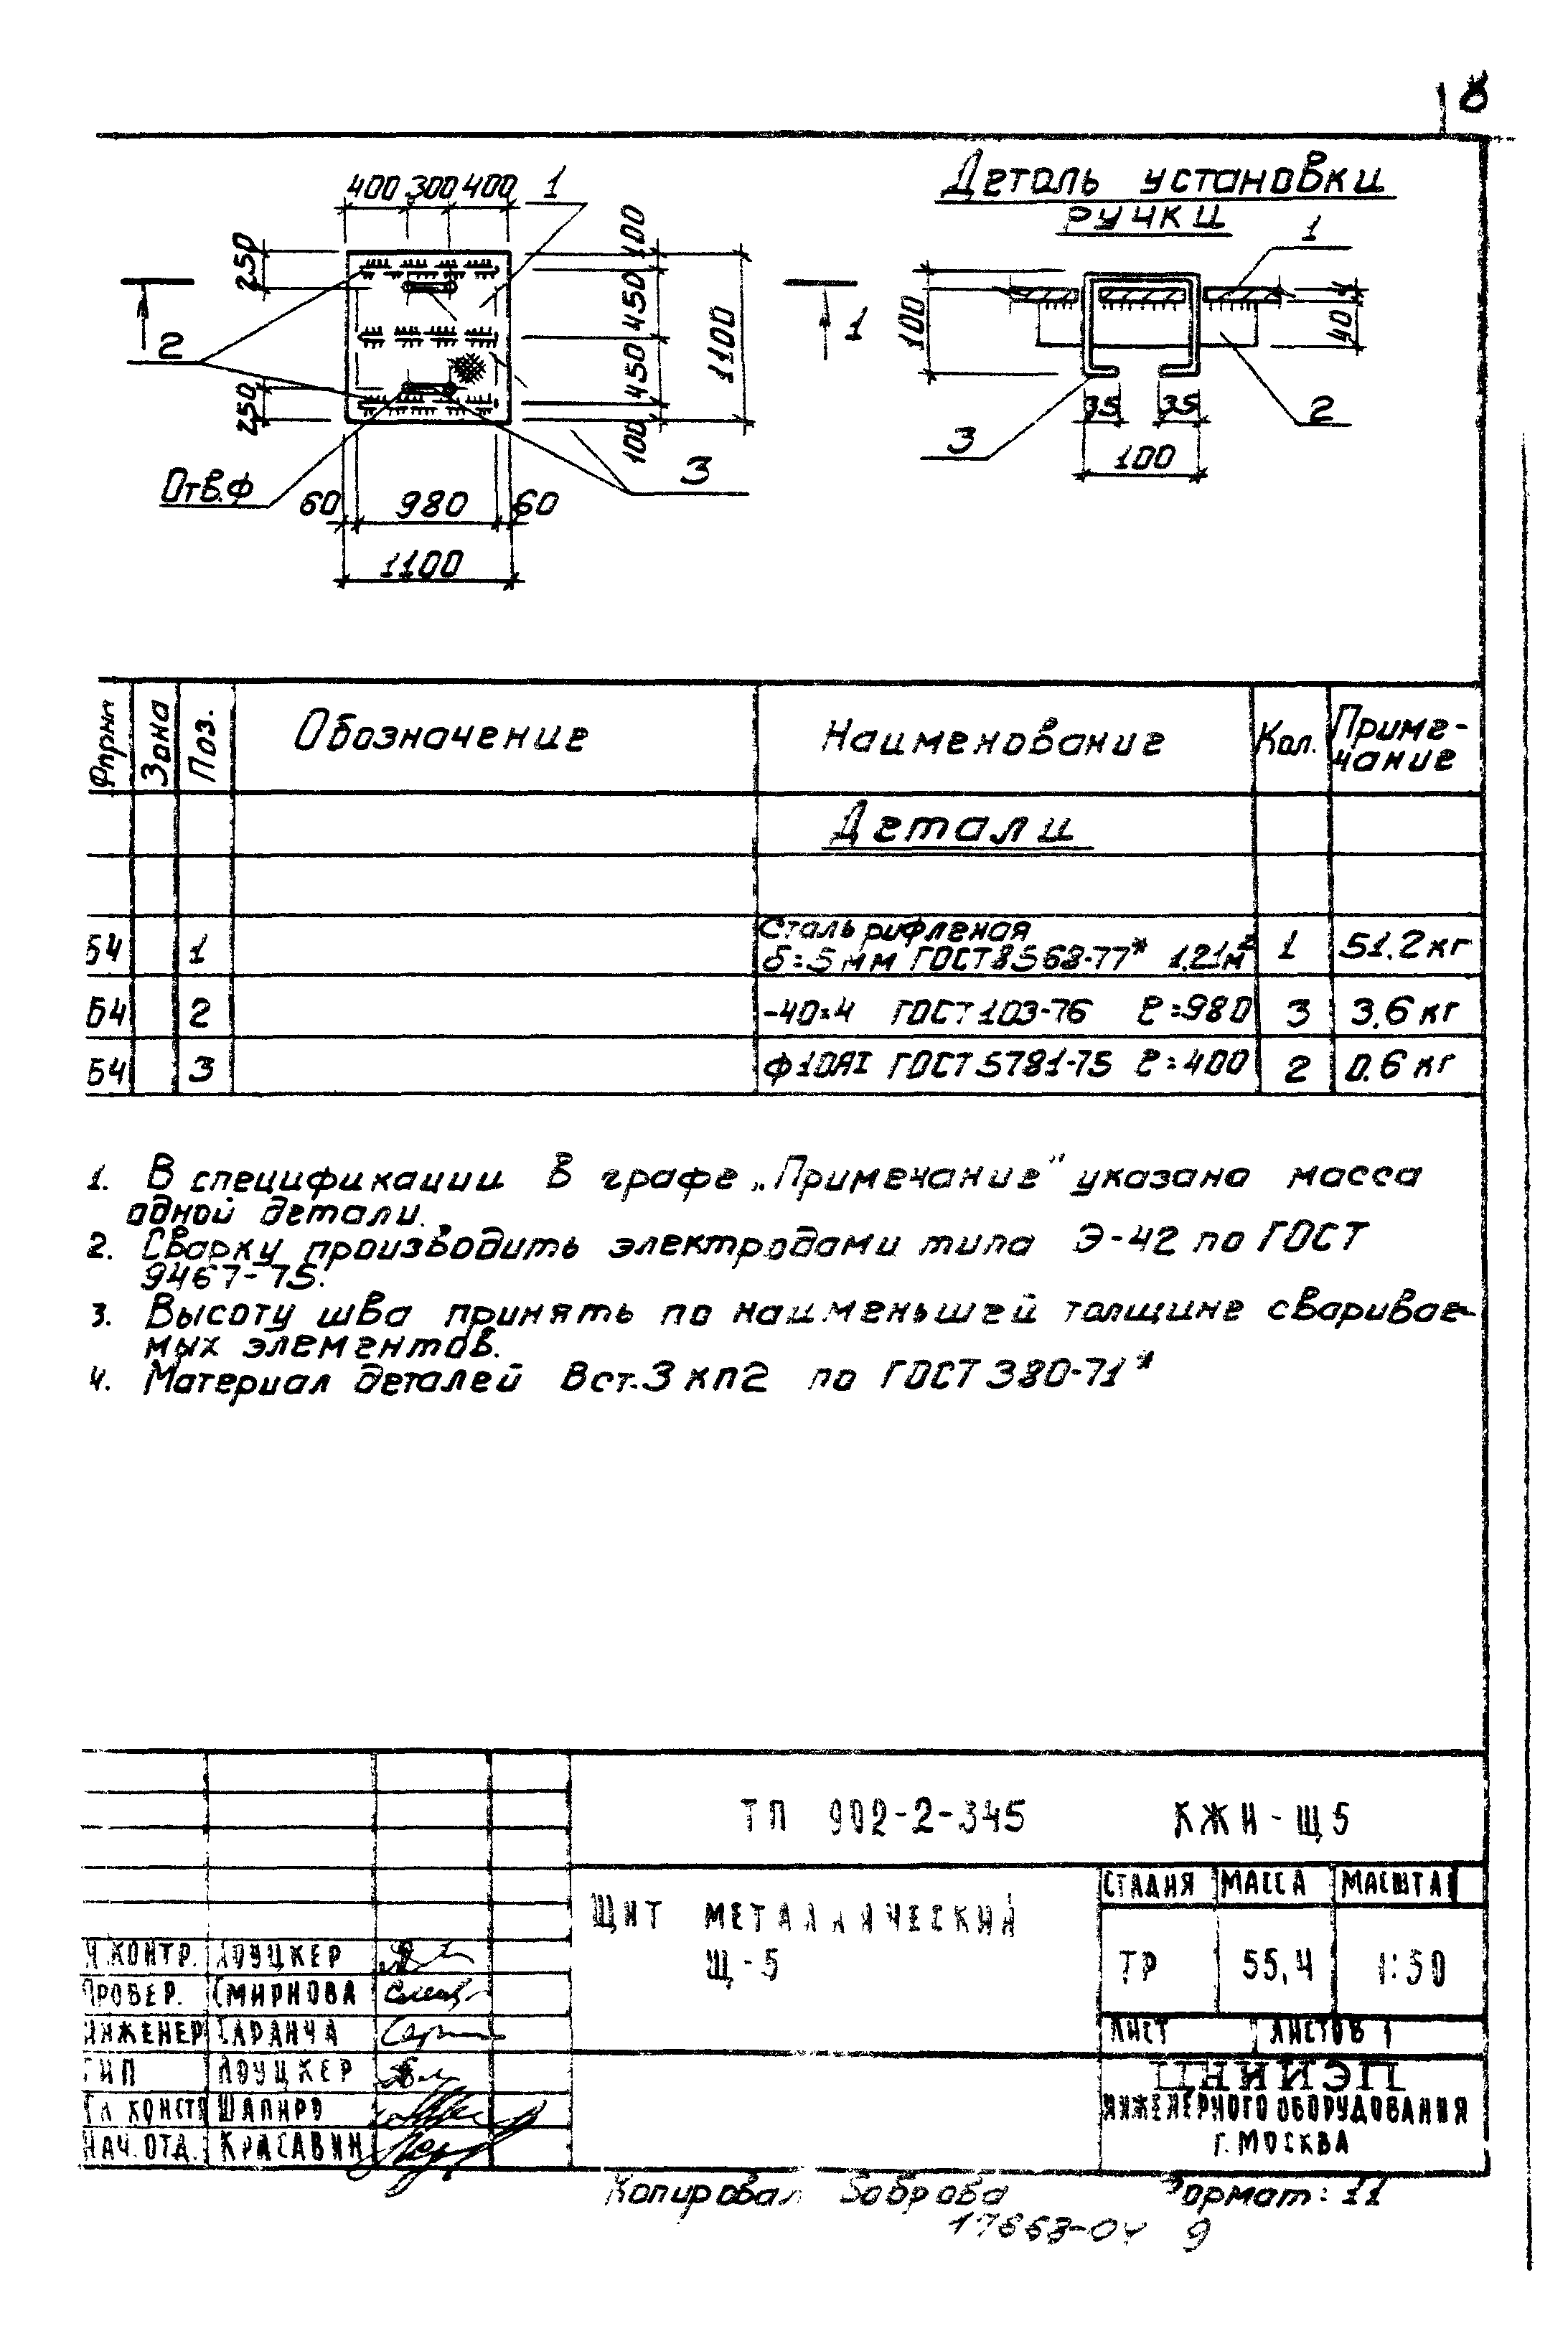 8
400 300 400 1
Деталь установки
ручки
1
250
100
450
1100
450
100
2
250
3
Отв.ф
60 980 60
1100
1
100
4
40
35 35
3
2
100
Зона Поз. Обозначение Наименование Кол. Приме-
чание
Детали
Сталь рифленая
Б4 1 δ=5мм ГОСТ 8568-77* 1.21м² 1 51.2кг
Б4 2 -40×4 ГОСТ 103-76 ℓ=980 3 3,6 кг
Б4 3 ф10АI ГОСТ 5781-75 ℓ=400 2 0.6 кг
1. В спецификации в графе „Примечание" указана масса
одной детали.
2. Сварку производить электродами типа Э-42 по ГОСТ
9467-75.
3. Высоту шва принять по наименьшей толщине свариваe-
мых элементов.
4. Материал деталей Вст.3 кп2 по ГОСТ 380-71*
ТП 902-2-345 КЖИ-Щ5
ЩИТ МЕТАЛЛИЧЕСКИЙ
Щ-5
СТАДИЯ МАССА МАСШТАБ
ТР 55,4
ЛИСТ ЛИСТОВ 1
Н.КОНТР. ЛОУЦКЕР
ПРОВЕР. СМИРНОВА
ИНЖЕНЕР САРАНЧА
ГИП ЛОУЦКЕР
ГЛ. КОНСТР ШАПИРО
НАЧ. ОТД. КРАСАВИН
ЦНИИЭП
ИНЖЕНЕРНОГО ОБОРУДОВАНИЯ
Г. МОСКВА
Копировал Боброва Формат: 11
9